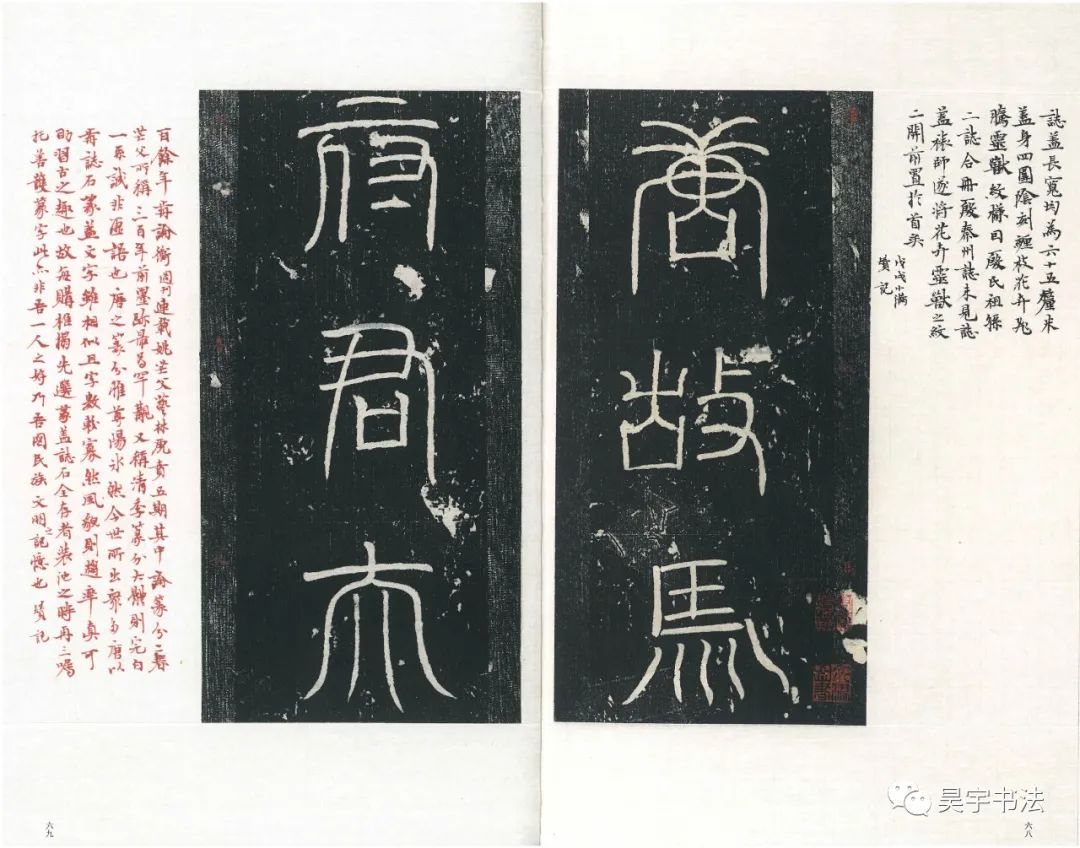 誌蓋長寬均為六十五釐米
蓋身四圍陰刻纏枝花卉飛
騰靈獸紋樣因殷氏祖孫
二誌合冊殷秦州誌未見誌
蓋裱師遂將花卉靈獸之紋
二開前置於首矣
戊戌小滿
贇記
唐故馬
府君大
百餘年前論衡週刊連載姚茫父藝林虎賁五期其中論篆分二春
茫父所稱三百年前墨跡最為罕覯又稱清季篆分大體則完白
一系誠非匪語也唐之篆分雅尊陽冰然今世所出唐以
前誌石篆蓋文字雖相似且字數較寡然風貌則趨率真可
助習古之趣也故每購椎搨先選篆蓋誌石全存者裝池之時再三囑
托善護篆字此亦非吾一人之好乃吾國民族文明之記憶也 贇記
六八
六九
昊宇书法